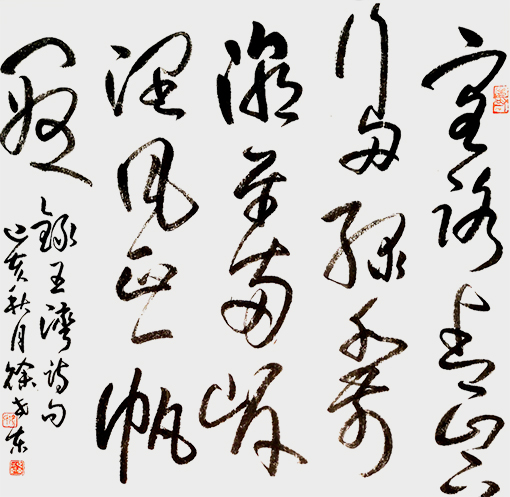 客路青山下
行舟绿水前
潮平两岸
阔风正一帆
悬
録王湾诗句
己亥秋月徐东